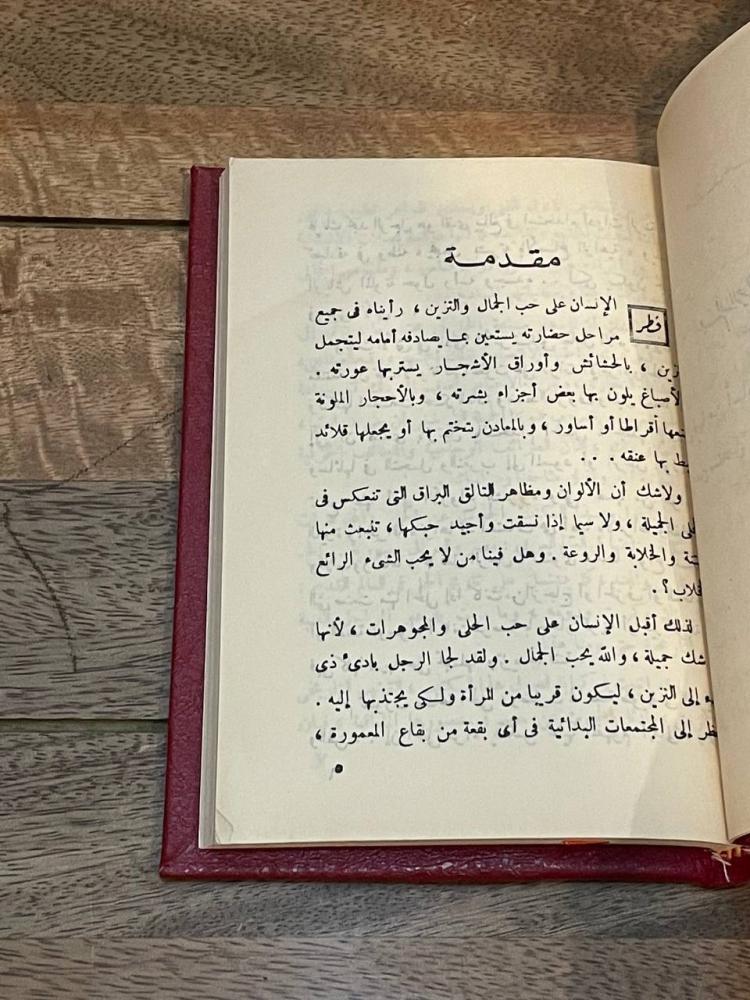 مقدمة
فطر الإنسان على حب الجمال والتزين ، رأيناه فى جميع
مراحل حضارته يستعين بما يصادفه أمامه ليتجمل
بالحشائش وأوراق الأشجار يستر بها عورته .
يلون بها بعض أجزاء بشرته ، وبالأحجار الملونة
أقراطا أو أساور ، وبالمعادن يتختم بها أو يجعلها قلائد
بها عنقه . . .
ولاشك أن الألوان ومظاهر التالق البراق التى تنعكس فى
الجميلة ، ولا سيما إذا نسقت وأجيد حبكها ، تنبعث منها
والخلابة والروعة . وهل فينا من لا يحب الشىء الرائع
لذلك أقبل الإنسان على حب الحلى والمجوهرات ، لأنها
شك جميلة ، والله يحب الجمال . ولقد لجا الرجل بادئ ذى
إلى التزين ، ليكون قريبا من المرأة ولكى يجتذبها إليه .
إلى المجتمعات البدائية فى أى بقعة من بقاع المعمورة ،
٥